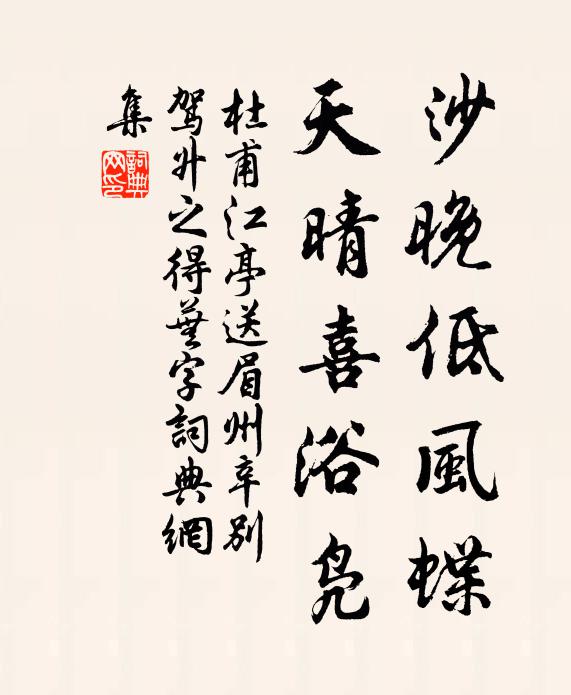 沙晚低風蝶
天晴喜浴鳧
杜甫江亭送眉州辛別
駕升之得蕪字詞典網
集
詞典
网印